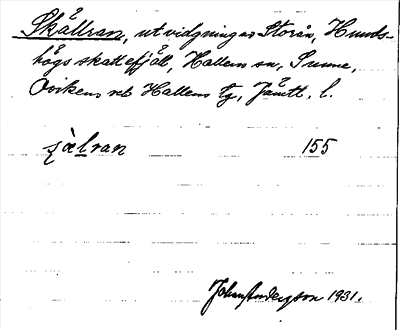 Skällran, utvidgning av Storån, Hunds-
högs skattefjäll, Hallens sn, Sunne,
Ovikens och Hallens tg, Jämtl. l.
ʃæ̀lran 155
Johan Anderzson 1931.